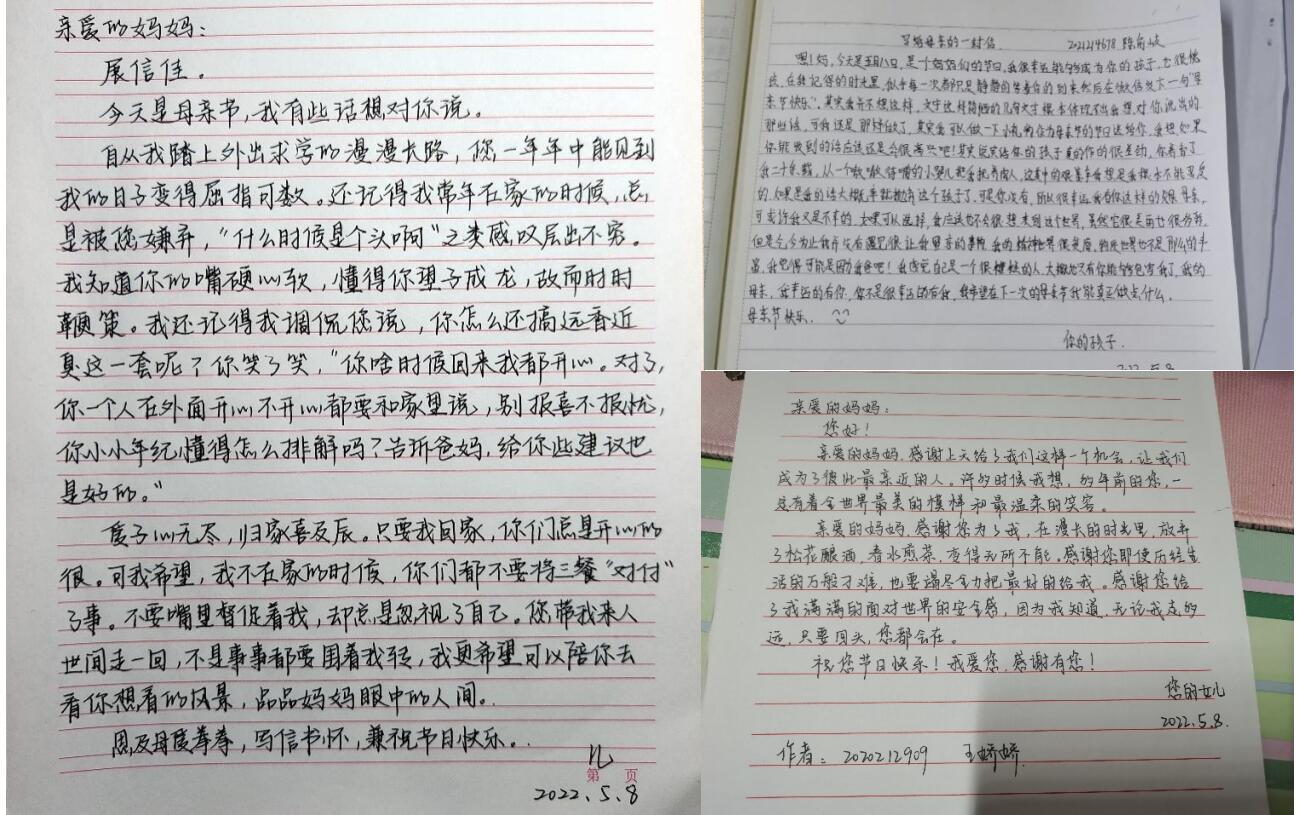 亲爱的妈妈：
展信佳。
今天是母亲节,我有些话想对你说。
自从我踏上外出求学的漫漫长路，您一年年中能见到
我的日子变得屈指可数。还记得我常年在家的时候，总
是被您嫌弃，“什么时候是个头啊”之类感叹层出不穷。
我知道你的嘴硬心软，懂得你望子成龙，故而时时
鞭策。我还记得我调侃您说，你怎么还搞远香近
臭这一套呢？你笑了笑，“你啥时候回来我都开心。对了，
你一个人在外面开心不开心都要和家里说，别报喜不报忧，
你小小年纪懂得怎么排解吗？告诉爸妈，给你些建议也
是好的。”
爱子心无尽，归家喜及辰。只要我回家，你们总是开心的
很。可我希望，我不在家的时候，你们都不要将三餐“对付”
了事。不要嘴里督促着我，却总是忽视了自己。您带我来人
世间走一回，不是事事都要围着我转，我更希望可以陪你去
看你想看的风景，品品妈妈眼中的人间。
思及母爱拳拳，写信书怀，兼祝节日快乐。
儿
第 页
2022.5.8
写给母亲的一封信 2021214678
嗯！妈，今天是五月八日，是个妈妈们的节日，我很幸运能够成为你的孩子，也很愧
疚，在我记得的时光里，似乎每一次都只是静静的等着你的到来然后在微信发下一句“母
亲节快乐”，其实我并不想这样，文字这样简陋的几句文字根本体现不出我想对你说出的
那些话，可我还是那样做了，其实我可以做一下小礼物作为母亲节的节日送给你，我想如果
你能收到的话应该还是会很高兴吧！其实说实话你的孩子真的作的很差劲，你养育了
我二十余载，从一个嗷嗷待哺的小婴儿把我抚育成人，这其中的艰辛我想是我根本不能忍受
的，如果是我的话大概早就抛弃这个孩子了，可是你没有，所以很幸运我有你这样的娘 母亲，
可或许我又是不幸的，如果可以选择，我应该也不会很想来到这个世界，虽然它很美丽也很缤纷，
但是今，今为止我并没有遇见很让我留恋的事物，我的精神世界很贫瘠，物质世界也不是那么的丰
富，我觉得可能是因为我爸吧！我感觉自己是一个很糟糕的人，大概也只有你能够包容我了，我的
母亲，我幸运的有你，你不是很幸运的有我，我希望在下一次的母亲节我能真正做点什么，
母亲节快乐。
你的孩子.
2022.5.8
亲爱的妈妈：
您好！
亲爱的妈妈，感谢上天给了我们这样一个机会，让我们
成为了彼此最亲近的人。许多时候我想，多年前的您，一
定有着全世界最美的模样和最温柔的笑容。
亲爱的妈妈，感谢您为了我，在漫长的时光里，放弃
了松花酿酒，春水煎茶，变得无所不能。感谢您即使历经生
活的万般刁难，也要竭尽全力把最好的给我。感谢您给
了我满满的面对世界的安全感，因为我知道，无论我走多
远，只要回头，您都会在。
祝您节日快乐！我爱您，感谢有您！
您的女儿
2022.5.8.
作者： 2020212909 王娇娇